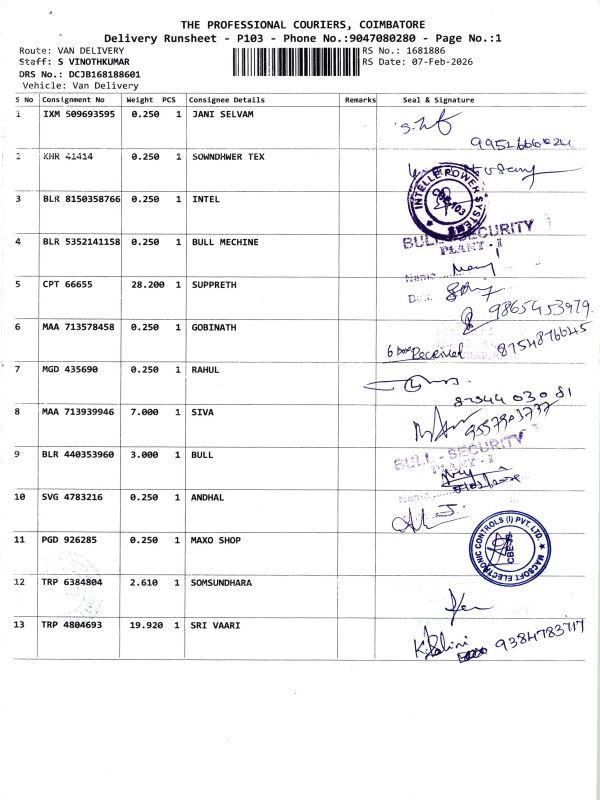 THE PROFESSIONAL COURIERS, COIMBATORE
Delivery Runsheet - P103 - Phone No.:9047080280 - Page No.:1
Route: VAN DELIVERY RS No.: 1681886
Staff: S VINOTHKUMAR RS Date: 07-Feb-2026
DRS No.: DCJB168188601
Vehicle: Van Delivery
S No Consignment No Weight PCS Consignee Details Remarks Seal & Signature
1 IXM 509693595 0.250 1 JANI SELVAM
2 KHR 41414 0.250 1 SOWNDHWER TEX
INTELLE POWER SYSTEMS
CBE-103
3 BLR 8150358766 0.250 1 INTEL
BULL - SECURITY
PLANT - I
4 BLR 5352141158 0.250 1 BULL MECHINE
Name
5 CPT 66655 28.200 1 SUPPRETH
9865453979.
6 MAA 713578458 0.250 1 GOBINATH
6 box Received 8754876645
7 MGD 435690 0.250 1 RAHUL
8 MAA 713939946 7.000 1 SIVA
9 BLR 440353960 3.000 1 BULL
BULL - SECURITY
PLANT - I
Name
10 SVG 4783216 0.250 1 ANDHAL
11 PGD 926285 0.250 1 MAXO SHOP
MACSOFT ELECTRONIC CONTROLS (I) PVT. LTD.
12 TRP 6384804 2.610 1 SOMSUNDHARA
13 TRP 4804693 19.920 1 SRI VAARI
K. Salini 9384783717